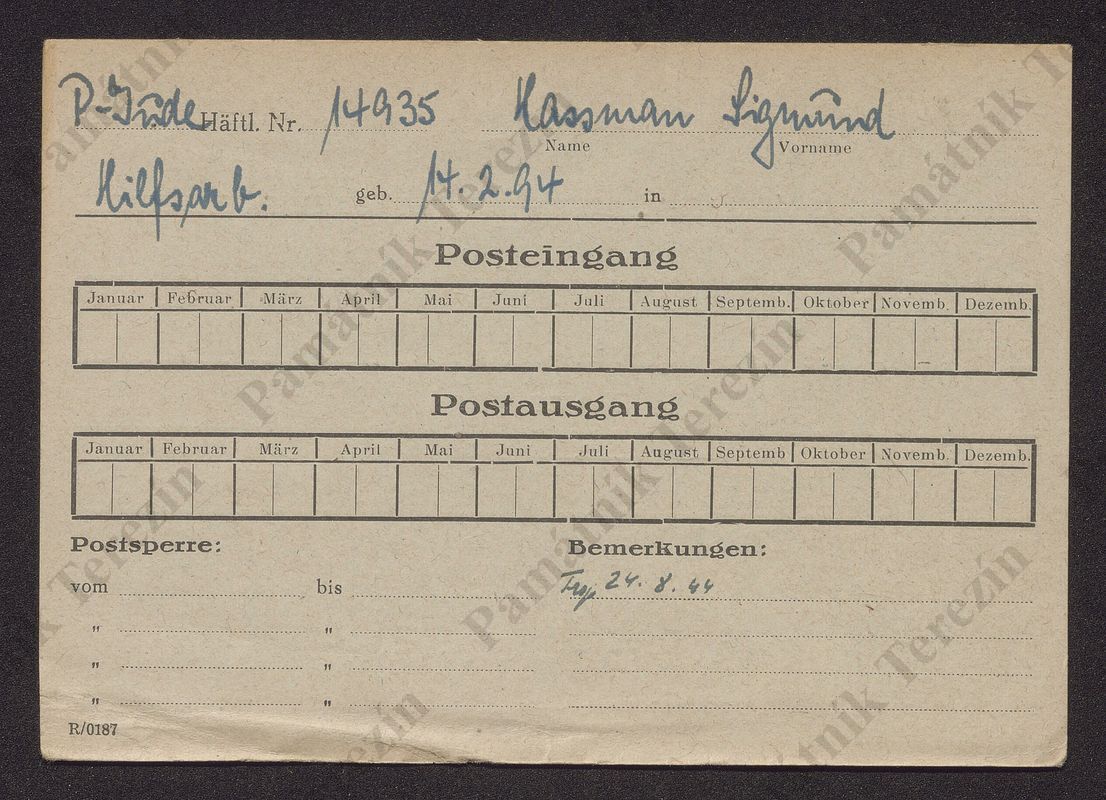 P-Jude Häftl. Nr. 14935 Hassman Sigmund
Name Vorname
Hilfsarb. geb. 14. 2. 94 in
Posteingang
Januar Februar März April Mai Juni Juli August Septemb. Oktober Novemb. Dezemb.
Postausgang
Januar Februar März April Mai Juni Juli August Septemb Oktober Novemb. Dezemb.
Postsperre: Bemerkungen:
vom bis 24. 8. 44
" "
" "
" "
R/0187
Památník Terezín